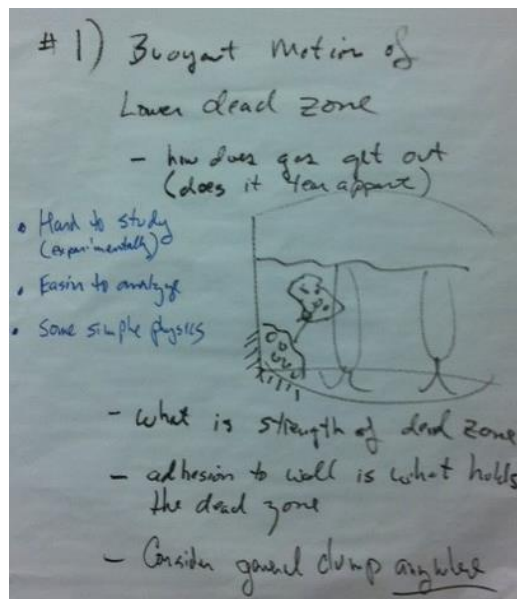 # 1) Buoyant Motion of
Lower dead zone
- how does gas get out
(does it tear appart)
• Hard to study
(experimentally)
• Easier to analyze
• Some simple physics
- what is strength of dead zone
- adhesion to wall is what holds
the dead zone
- Consider general clump anywhere